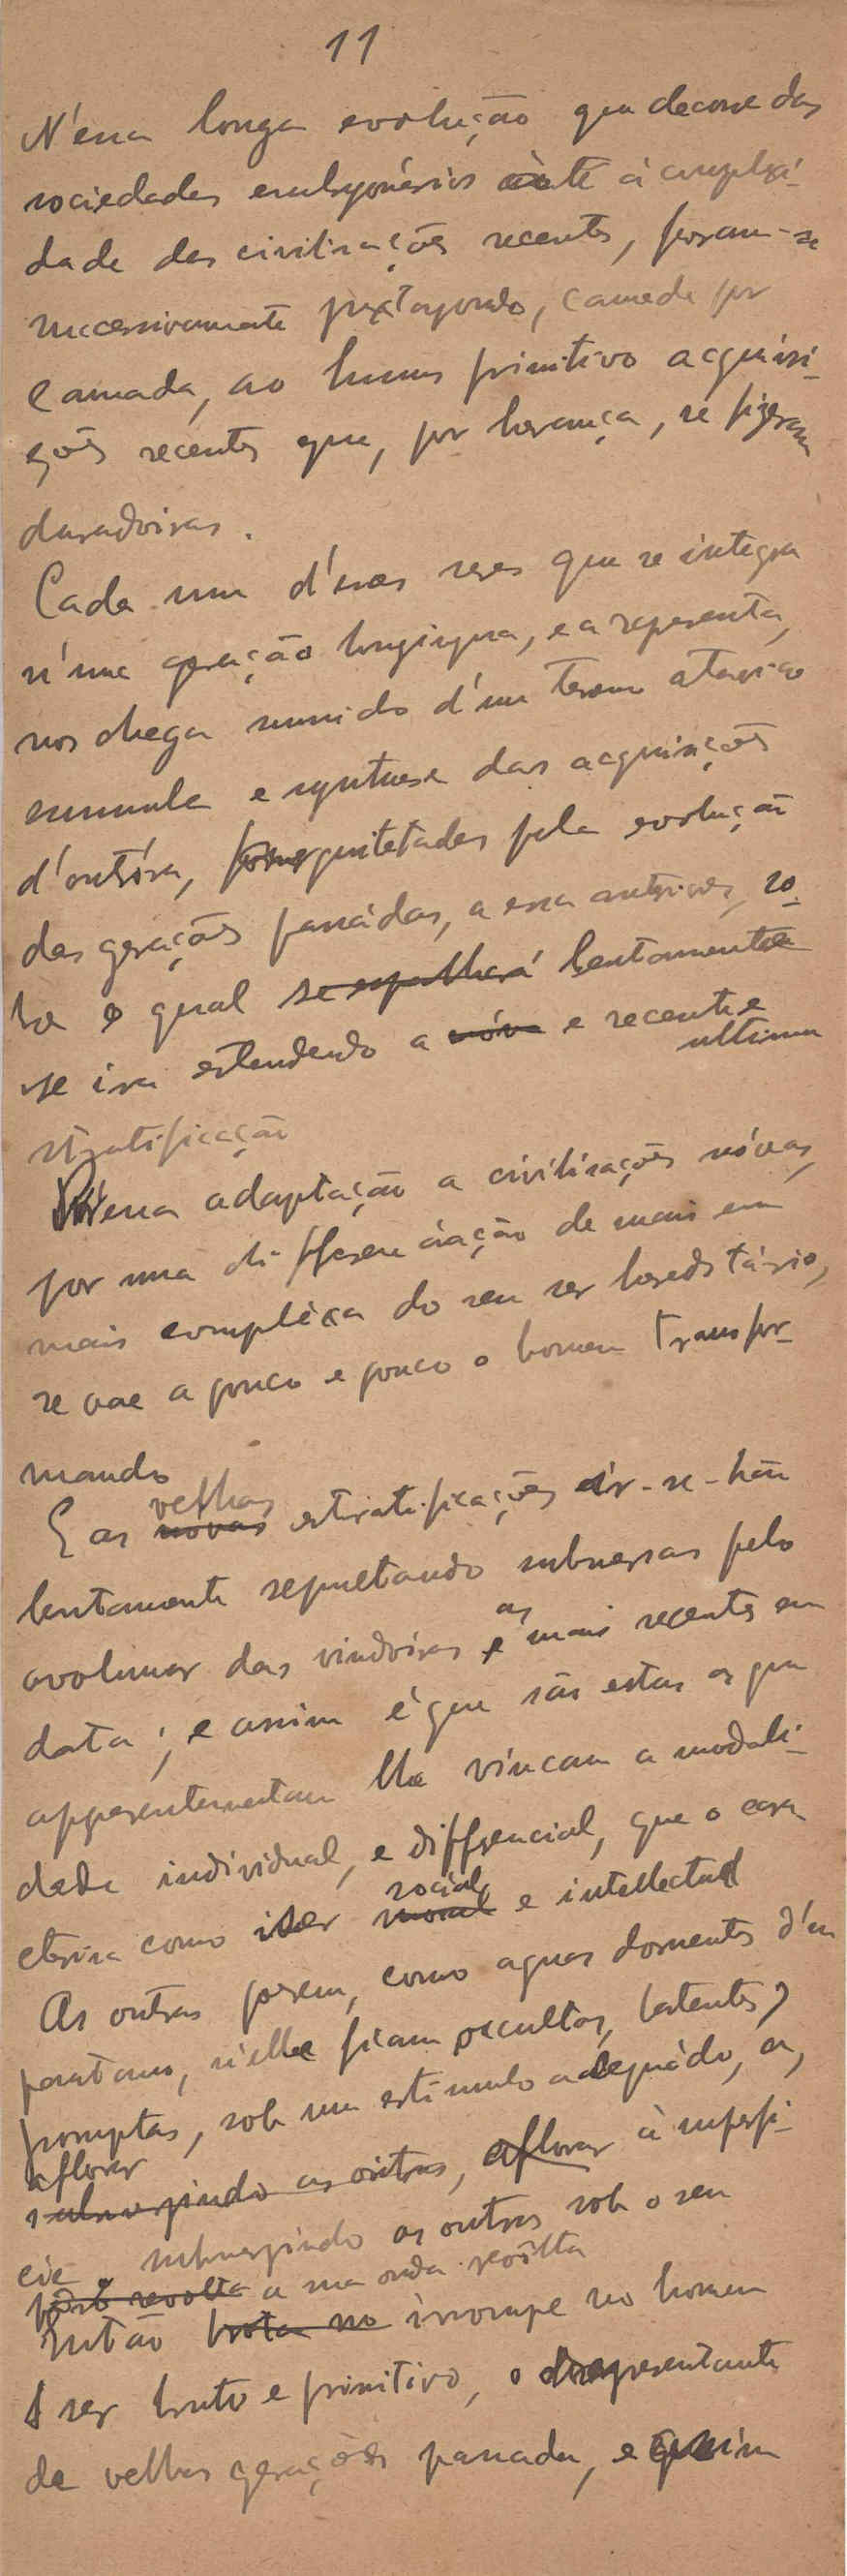 11
N'essa longa evolução que decorre das
sociedades embryonárias até á complexi-
dade das civilisações recentes, foram-se
successivamente juxtapondo, camada por
camada, ao humus primitivo acquisi-
ções recentes que, por herança, se fizeram
duradoiras.
Cada um d'esses seres que se integra
n'uma geração longinqua, e a representa,
nos chega munido d'um terreno atavico
summula e synthese das acquisições
d'outróra, pela evolução
das gerações passádas, a essa anteriores, so-
bre o qual se espalhará lentamente
se ira estendendo a nóva e recente e
ultima
stratificação
N'essa adaptação a civilisações nóvas,
por uma differenciação de mais em
mais complexa do seu ser hereditário,
se vae a pouco e pouco o homem transfor-
mando
velhas
E as novas estratificações ir-se-hão
lentamente sepultando submersas pelo
as
avolumar das vindoiras e mais recentes em
data; e assim é que são estas as que
apparentemente lhe vincam a modali-
dade individual, e differencial, que o cara
social
cterisa como ser moral e intellectual
As outras porem, como aguas dormentes d'um
pantano, n'elle ficam occultas, latentes,
promptas, sob um estimulo adequádo, a,
aflorar
submergindo as outras, aflorar à superfi-
cie submergindo as outras sob o seu
revolta a sua onda revôlta
Então brota no irrompe no homem
O ser bruto e primitivo, o representante
de velhas gerações passadas, e assim